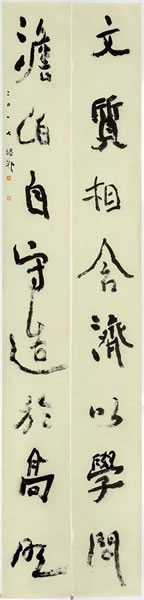 文質相含濟以學問
澹泊自守造於高明
二〇一七